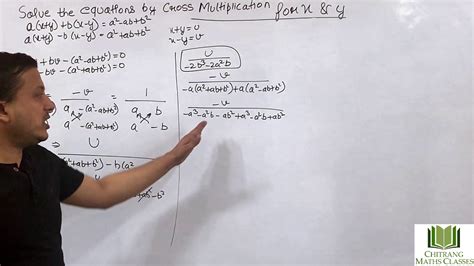 Solve the equations by Cross Multiplication for x & y
a(x+y)+b(x-y) = a²-ab+b²
a(x+y)-b(x-y) = a²+ab+b²
x+y=U
x-y=v
+bv-(a²-ab+b²)=0
bv-(a²+ab+b²)=0
-v
1
a -(a²-ab+b²)
a -(a²+ab+b²)
a b
a -b
U
+ab+b²)-b(a²
-b²
U
-2b³-2a²b
-v
-a(a²+ab+b²)+a(a²-ab+b²)
-v
-a³-a²b-ab²+a³-a²b+ab²
CHITRANG
MATHS CLASSES